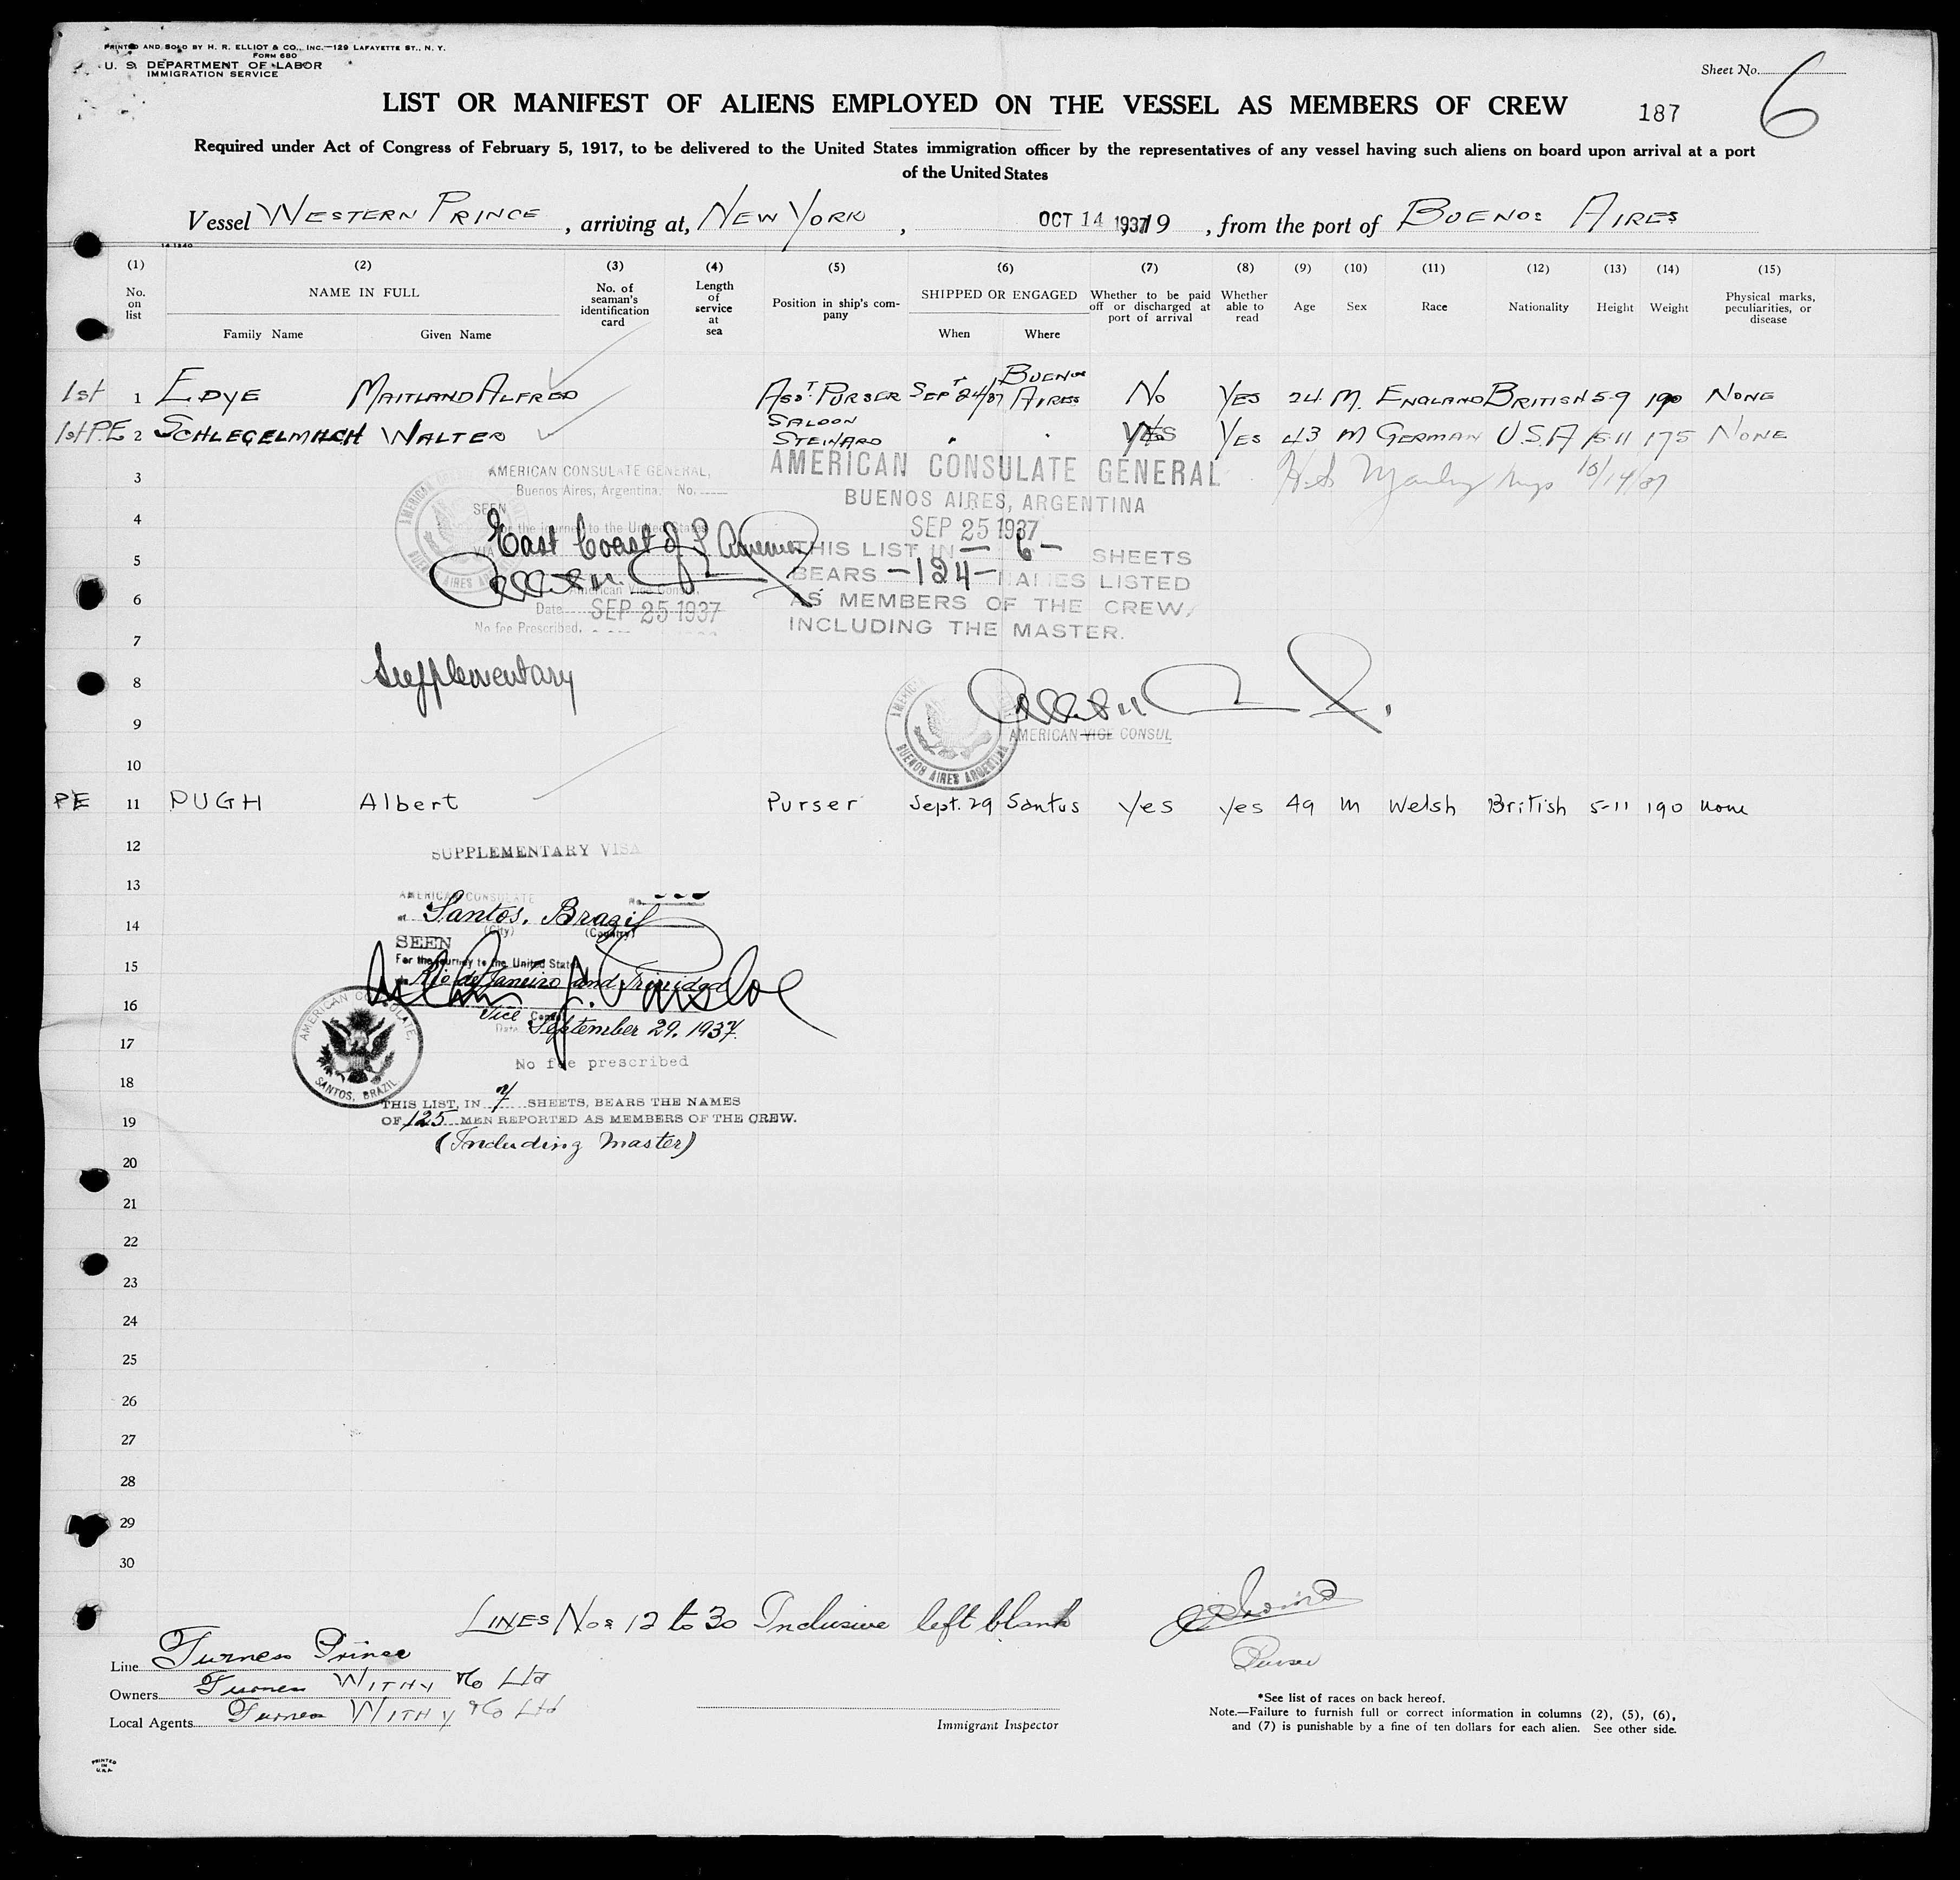 PRINTED AND SOLD BY H. R. ELLIOT & CO., INC.—129 LAFAYETTE ST., N. Y.
FORM 680
U. S. DEPARTMENT OF LABOR
IMMIGRATION SERVICE
Sheet No. 6
LIST OR MANIFEST OF ALIENS EMPLOYED ON THE VESSEL AS MEMBERS OF CREW
187
Required under Act of Congress of February 5, 1917, to be delivered to the United States immigration officer by the representatives of any vessel having such aliens on board upon arrival at a port
of the United States
Vessel WESTERN PRINCE, arriving at, NEW YORK, OCT 14 1937, 19, from the port of BUENOS AIRES
14 1240
(1) (2) (3) (4) (5) (6) (7) (8) (9) (10) (11) (12) (13) (14) (15)
No. on list
NAME IN FULL
Family Name Given Name
No. of seaman's identification card
Length of service at sea
Position in ship's company
SHIPPED OR ENGAGED
When Where
Whether to be paid off or discharged at port of arrival
Whether able to read
Age Sex Race Nationality Height Weight
Physical marks, peculiarities, or disease
1st 1 EDYE MAITLAND ALFRED ASST PURSER SEPT 24/37 BUENOS AIRES NO YES 24 M. ENGLAND BRITISH 5-9 190 NONE
1st P.E 2 SCHLEGELMILCH WALTER SALOON STEWARD " " YES YES 43 M GERMAN U.S.A 5-11 175 NONE
3 10/14/37
AMERICAN CONSULATE GENERAL,
Buenos Aires, Argentina. No.
SEEN
For the journey to the United States
VIA East Coast of S America
American Vice Consul.
Date SEP 25 1937
No fee Prescribed.
AMERICAN CONSULATE GENERAL
BUENOS AIRES, ARGENTINA
SEP 25 1937
THIS LIST IN — 6 — SHEETS
BEARS -124- NAMES LISTED
AS MEMBERS OF THE CREW,
INCLUDING THE MASTER.
4
5
6
7
8 Supplementary
9
AMERICAN VICE CONSUL
BUENOS AIRES ARGENTINA
10
PE 11 PUGH Albert Purser Sept. 29 Santos Yes yes 49 M Welsh British 5-11 190 none
12
SUPPLEMENTARY VISA
13
AMERICAN CONSULATE No.
at Santos, Brazil
(City) (Country)
14
SEEN
For the journey to the United States
15
Rio de Janeiro and Trinidad
16
Vice Consul
Date September 29, 1937.
17
No fee prescribed
AMERICAN CONSULATE,
SANTOS, BRAZIL
18
THIS LIST, IN 7 SHEETS, BEARS THE NAMES
OF 125 MEN REPORTED AS MEMBERS OF THE CREW.
19
(Including Master)
20
21
22
23
24
25
26
27
28
29
30
LINES Nos 12 to 30 Inclusive left blank
Purser
Line Furness Prince
Owners Furness WITHY & Co Ltd
Local Agents Furness WITHY & Co Ltd
Immigrant Inspector
*See list of races on back hereof.
Note.—Failure to furnish full or correct information in columns (2), (5), (6),
and (7) is punishable by a fine of ten dollars for each alien. See other side.
PRINTED
IN
U.S.A.